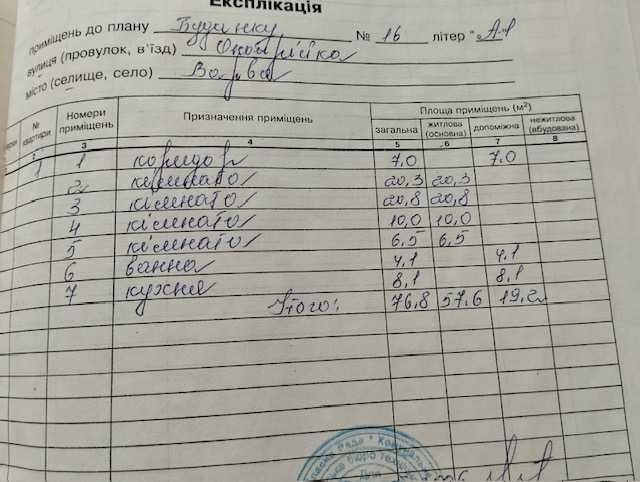 Експлікація
приміщень до плану Будинку № 16 літер "А-1
вулиця (провулок, в'їзд) Октябрська
місто (селище, село) Варва
№ квартири Номери приміщень Призначення приміщень Площа приміщень (м²)
загальна житлова (основна) допоміжна нежитлова (вбудована)
2 3 4 5 6 7 8
1 1 коридор 7,0 7,0
2 кімната 20,3 20,3
3 кімната 20,8 20,8
4 кімната 10,0 10,0
5 кімната 6,5 6,5
6 ванна 4,1 4,1
7 кухня 8,1 8,1
Итого: 76,8 57,6 19,2